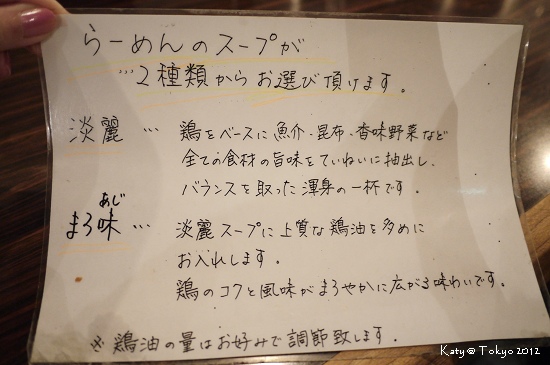 らーめんのスープが
…2種類からお選び頂けます。
淡麗 … 鶏をベースに魚介・昆布・香味野菜など
全ての食材の旨味をていねいに抽出し、
バランスを取った渾身の一杯です。
あじ
まろ味 … 淡麗スープに上質な鶏油を多めに
お入れします。
鶏のコクと風味がまろやかに広がる味わいです。
※ 鶏油の量はお好みで調節致します。
Katy@Tokyo 2012